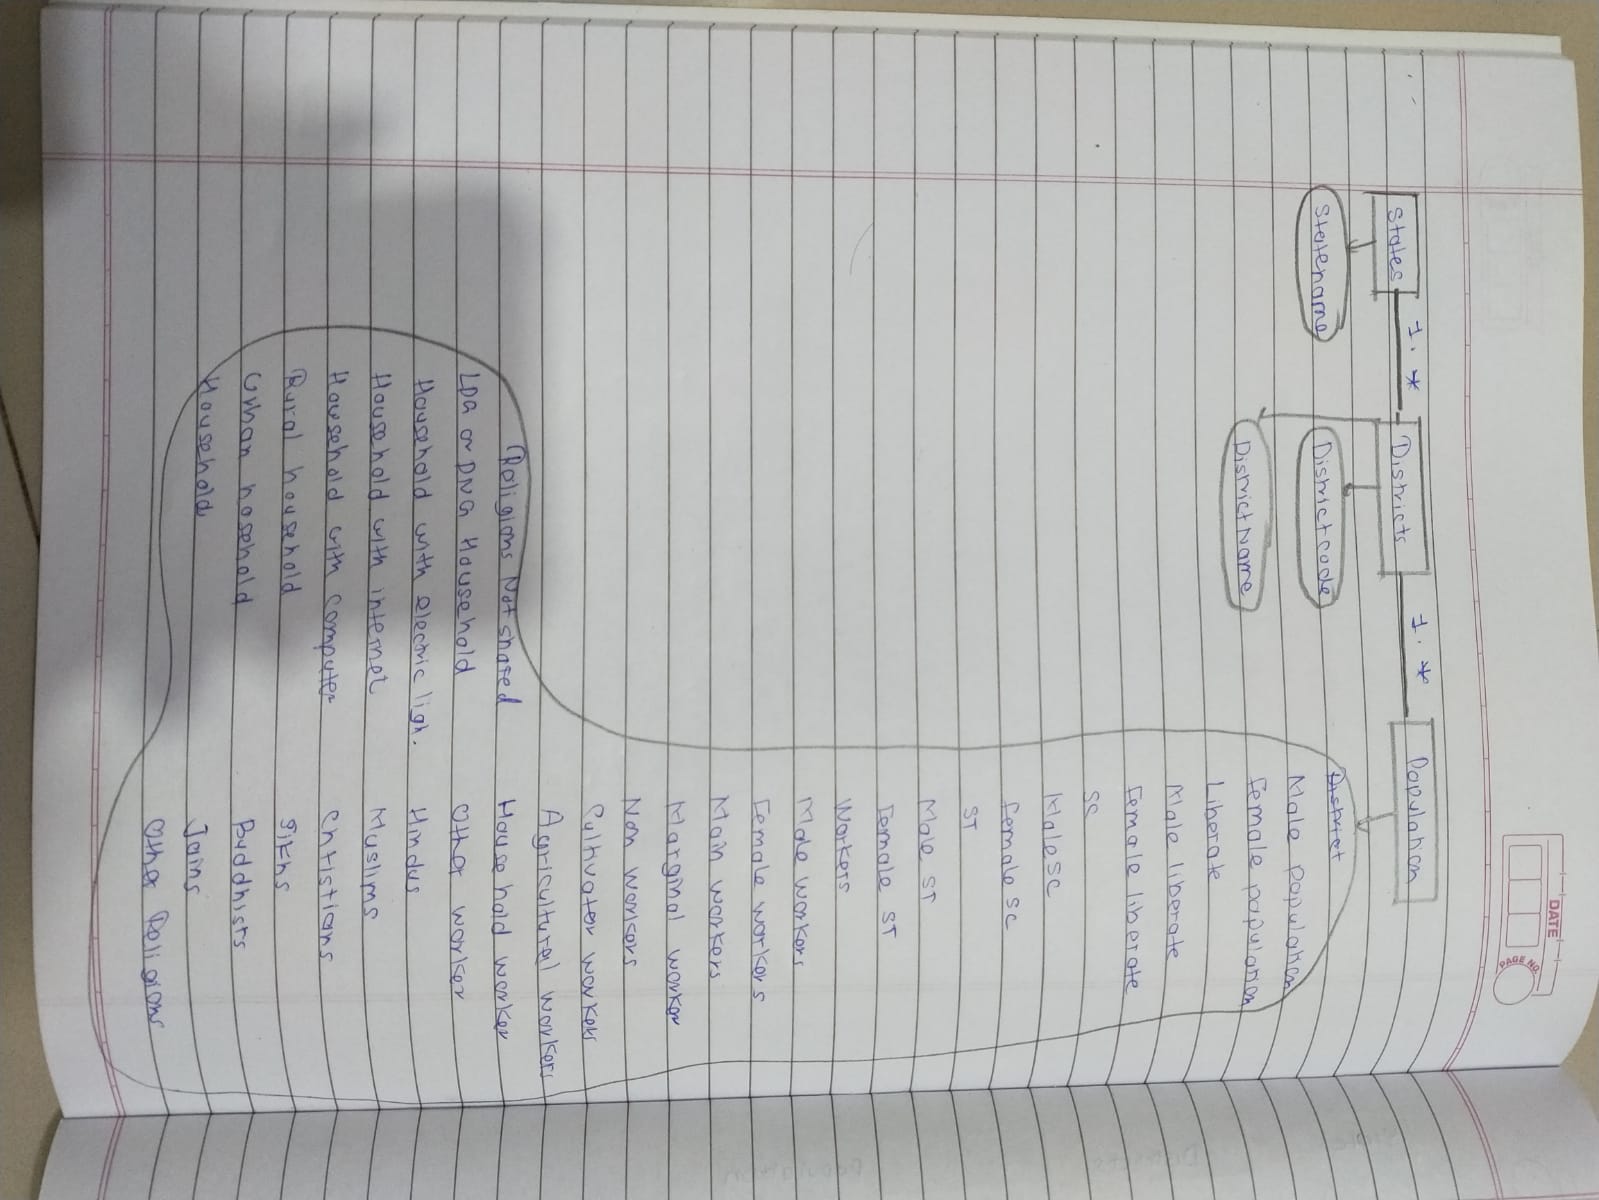 DATE
PAGE NO.
States 1 . * Districts 1 . * Population
Statename
District code
DistrictName
District
Male population
Female population
Liberate
Male liberate
Female liberate
SC
Male SC
Female SC
ST
Male ST
Female ST
Workers
Male workers
Female workers
Main workers
Marginal worker
Non workers
Cultivater workers
Agricultural workers
House hold worker
Other worker
Hindus
Muslims
Christians
Sikhs
Buddhists
Jains
Other Religions
Religions Not shared
Household
Household with electric ligh.
Household with internet
Household with computer
Rural household
Urban hosehold
Household